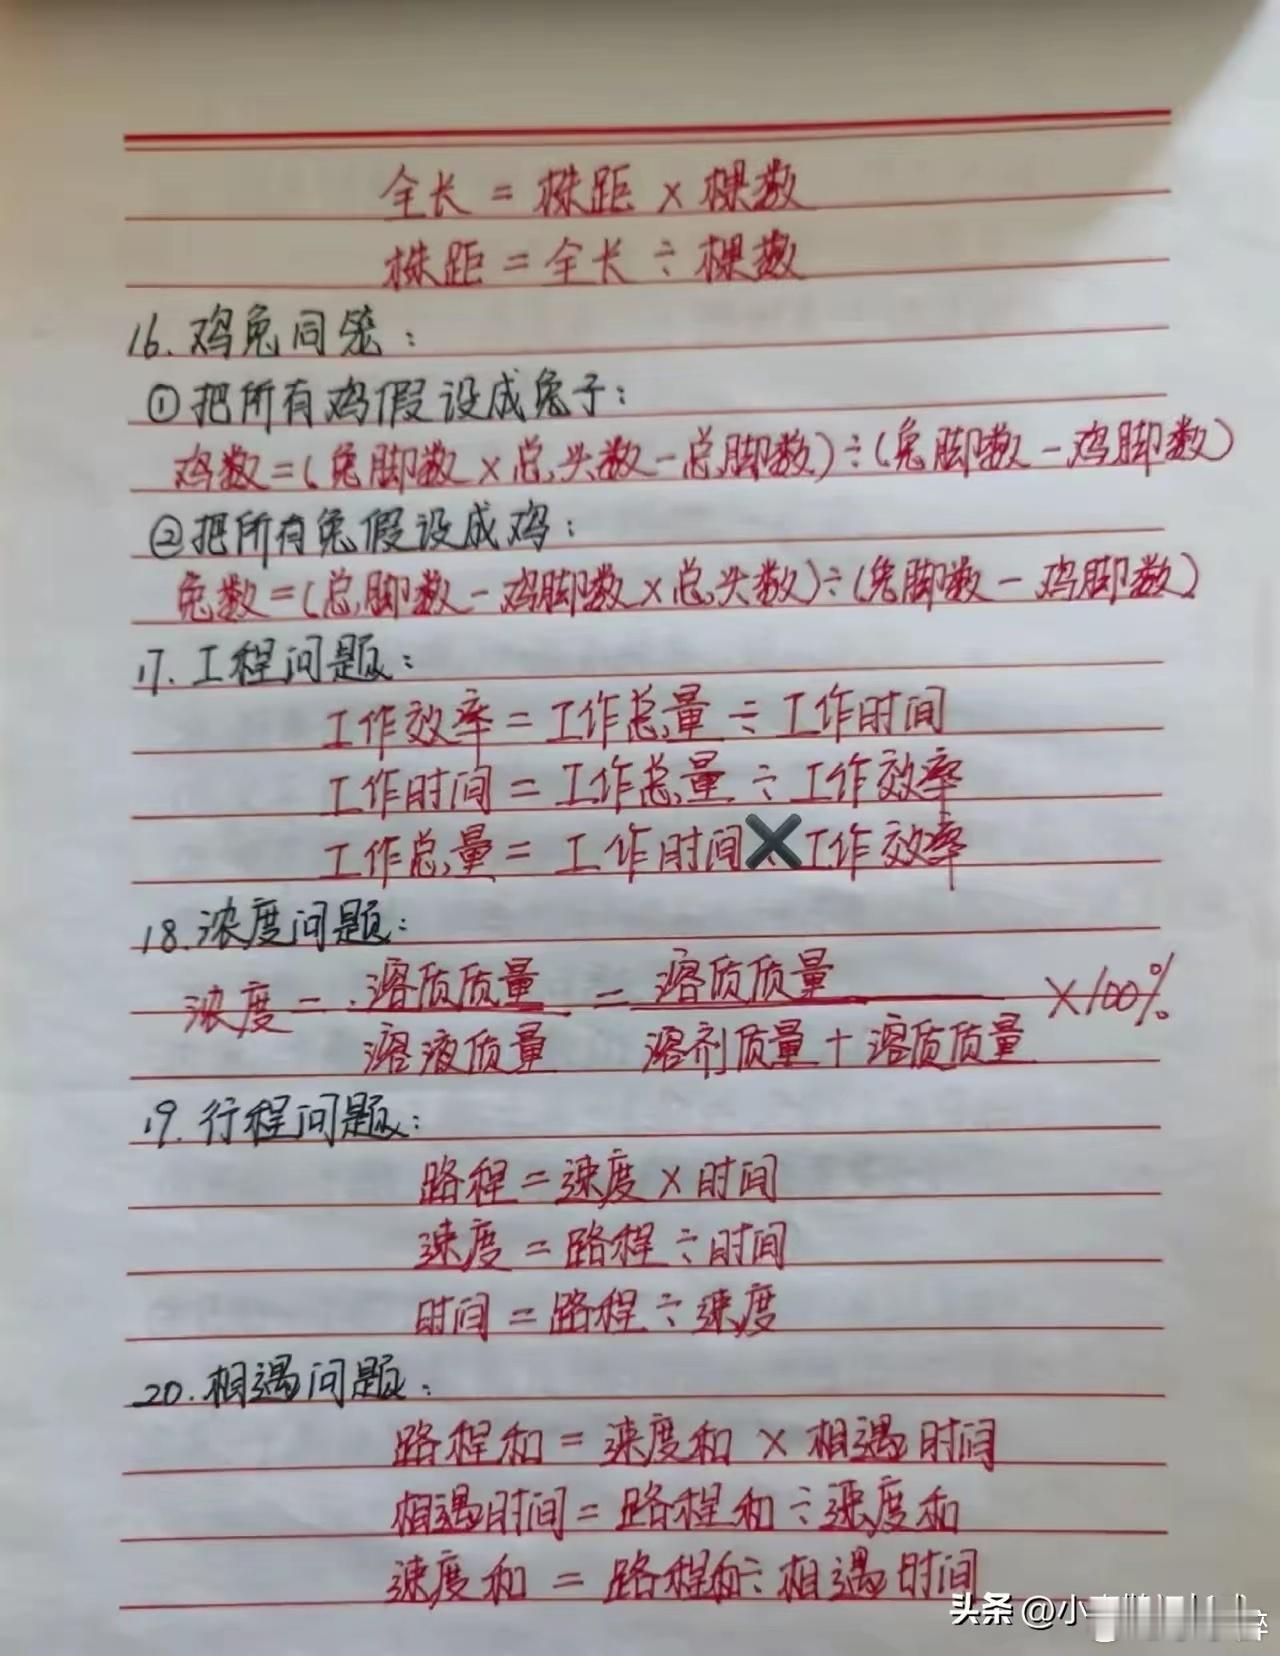 全长 = 株距 × 棵数
株距 = 全长 ÷ 棵数
16. 鸡兔同笼：
①把所有鸡假设成兔子：
鸡数=(兔脚数×总头数-总脚数)÷(兔脚数-鸡脚数)
②把所有兔假设成鸡：
兔数=(总脚数-鸡脚数×总头数)÷(兔脚数-鸡脚数)
17. 工程问题：
工作效率=工作总量÷工作时间
工作时间=工作总量÷工作效率
工作总量=工作时间×工作效率
18. 浓度问题：
浓度 = 溶质质量 = 溶质质量 ×100%
溶液质量 溶剂质量+溶质质量
19. 行程问题：
路程=速度×时间
速度=路程÷时间
时间=路程÷速度
20. 相遇问题：
路程和=速度和×相遇时间
相遇时间=路程和÷速度和
速度和=路程和÷相遇时间
头条 @小